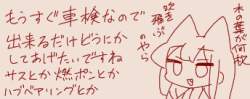 もうすぐ車検なので
出来るだけどうにか
してあげたいですね
サスとか燃ポンとか
ハブベアリングとか
木の葉が何枚
吹き飛ぶ
のやら